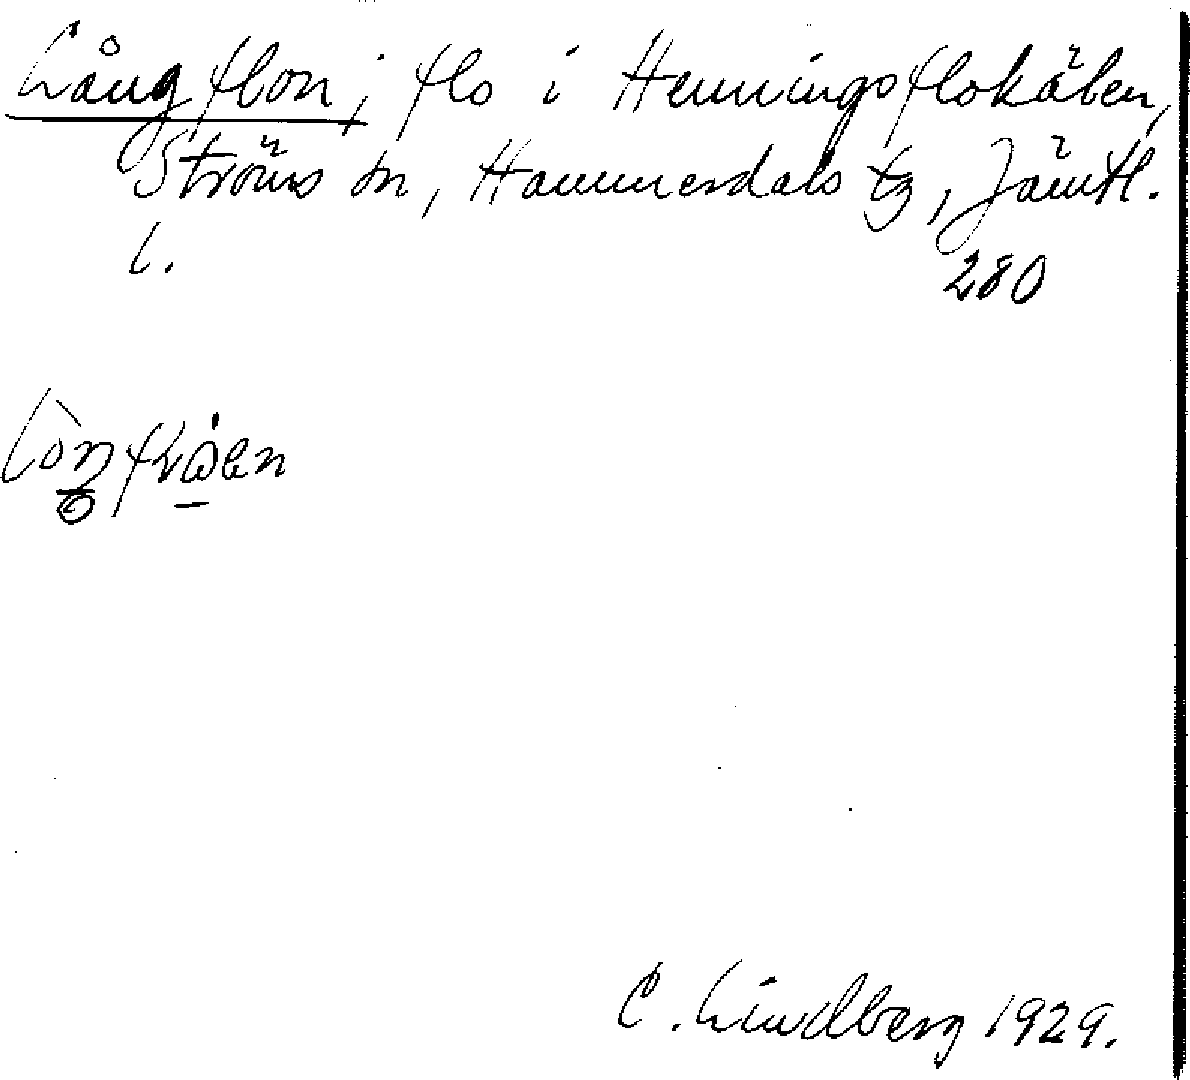 Långflon; flo i Henningsflokälen,
Ströms sn, Hammerdals tg, Jämtl.
l.
280
C. Lindberg 1929.